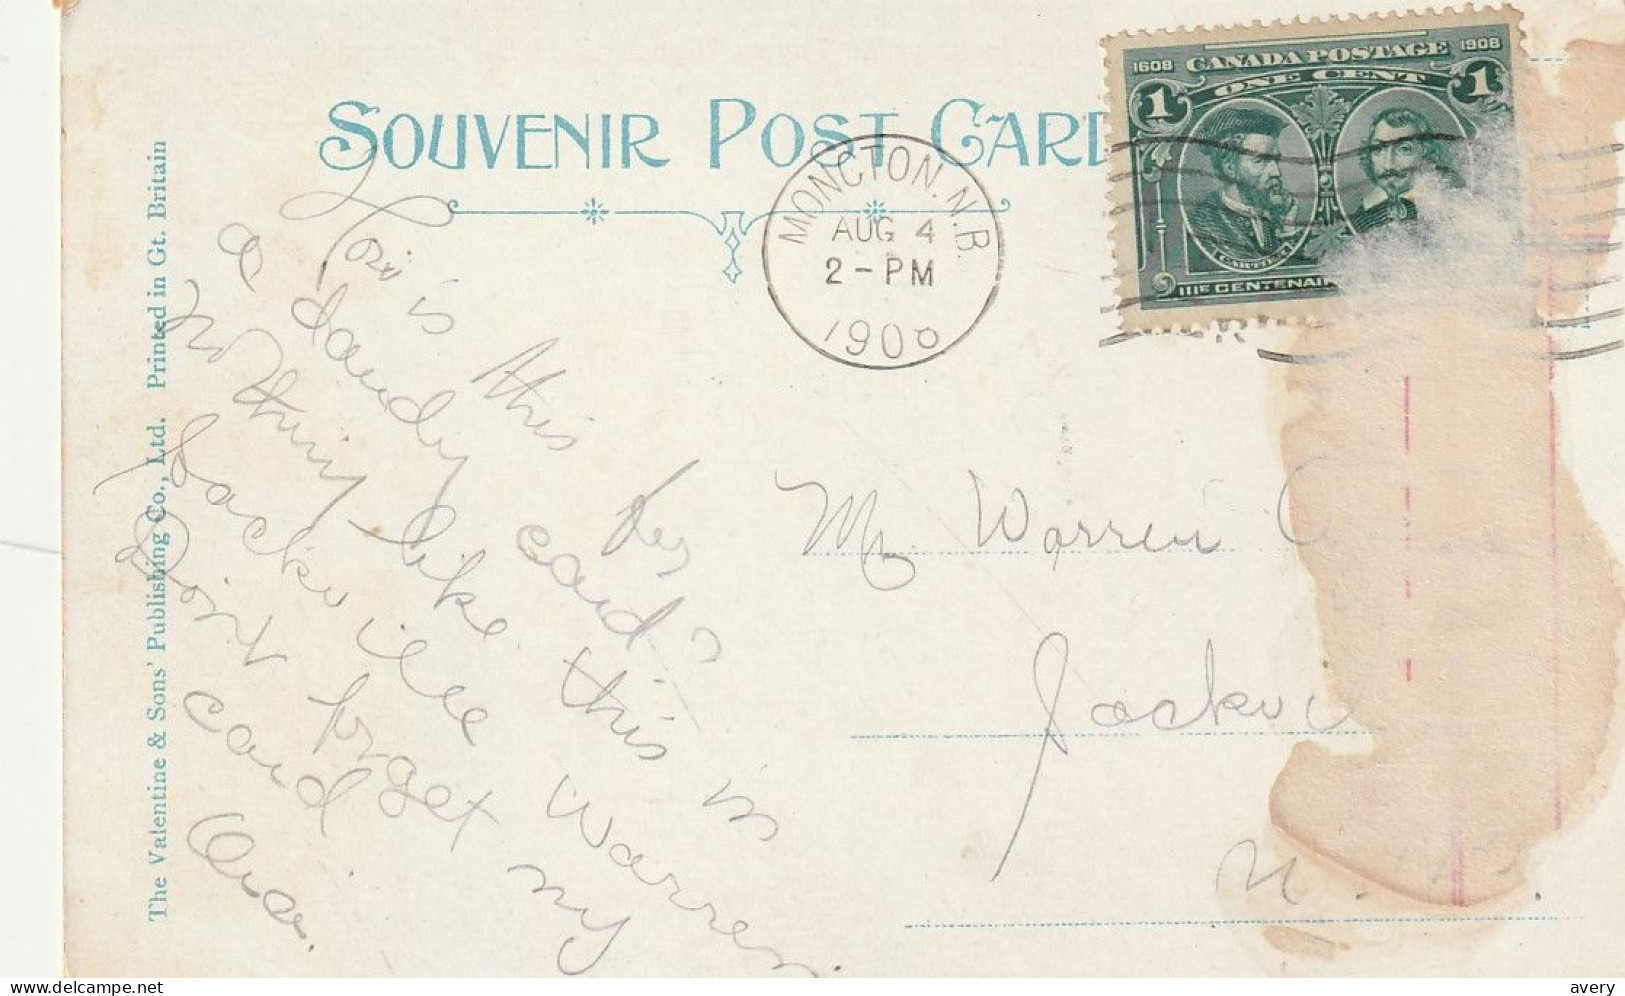 SOUVENIR POST CARD
1608 CANADA POSTAGE 1908
ONE CENT
1 1
CARTIER
IIIE CENTENAIR
MONCTON. N.B.
AUG 4
2-PM
190
The Valentine & Sons' Publishing Co., Ltd. Printed in Gt. Britain
is this
a dandy card?
Nothing like this in
Sackville Warren
Dont forget my
card
Mr. Warren
Sackvi
N.
www.delcampe.net
avery